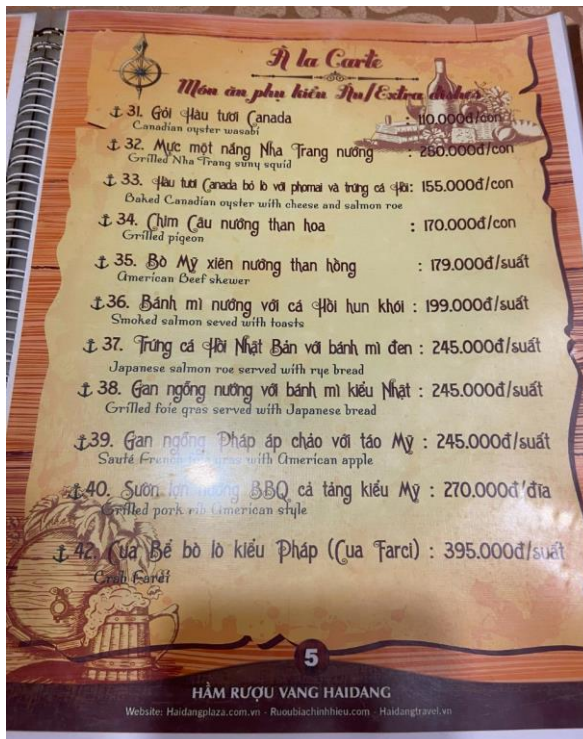 À la Carte
Món ăn phụ kiểu Âu/Extra dishes
31. Gỏi Hàu tươi Canada : 110.000đ/con
Canadian oyster wasabi
32. Mực một nắng Nha Trang nướng : 260.000đ/con
Grilled Nha Trang suny squid
33. Hàu tươi Canada bỏ lò với phomai và trứng cá Hồi: 155.000đ/con
Baked Canadian oyster with cheese and salmon roe
34. Chim Câu nướng than hoa : 170.000đ/con
Grilled pigeon
35. Bò Mỹ xiên nướng than hồng : 179.000đ/suất
American Beef skewer
36. Bánh mì nướng với cá Hồi hun khói : 199.000đ/suất
Smoked salmon seved with toasts
37. Trứng cá Hồi Nhật Bản với bánh mì đen : 245.000đ/suất
Japanese salmon roe served with rye bread
38. Gan ngỗng nướng với bánh mì kiểu Nhật : 245.000đ/suất
Grilled foie gras served with Japanese bread
39. Gan ngỗng Pháp áp chảo với táo Mỹ : 245.000đ/suất
Sauté French gras with American apple
40. Sườn lợn nướng BBQ cả tảng kiểu Mỹ : 270.000đ/đĩa
Grilled pork rib American style
42. Cua Bể bỏ lò kiểu Pháp (Cua Farci) : 395.000đ/suất
Crab Farci
5
HẦM RƯỢU VANG HAIDANG
Website: Haidangplaza.com.vn - Ruoubiachinhhieu.com - Haidangtravel.vn